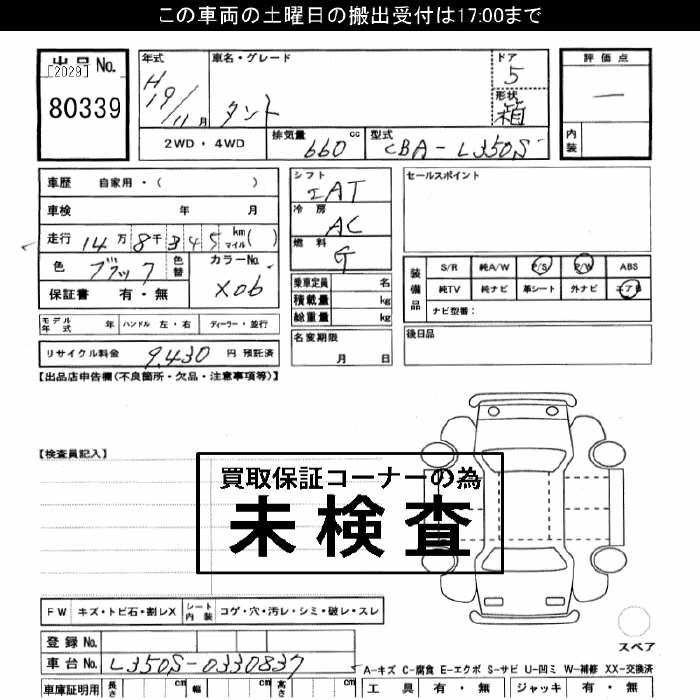 この車両の土曜日の搬出受付は17:00まで
出品No.
[2029]
80339
年式 車名・グレード ドア
H19/11月 タント 5
形状
箱
評価点
—
内装
2WD・4WD 排気量 660 cc 型式 CBA-L350S
車歴 自家用・( )
車検 年 月
走行 14万8千345 km マイル ( )
色 ブラック 色替 カラーNo. X06
保証書 有・無
シフト
IAT
冷房
AC
燃料
G
乗車定員 名
積載量 kg
総重量 kg
セールスポイント
装備品 S/R 純A/W P/S P/W ABS
純TV 純ナビ 革シート 外ナビ エアB
ナビ型番:
モデル年式 年 ハンドル 左・右 ディーラー・並行
リサイクル料金 9,430 円 預託済
名変期限
月 日
後日品
【出品店申告欄(不良箇所・欠品・注意事項等)】
【検査員記入】
買取保証コーナーの為
未検査
FW キズ・トビ石・割レX シート内装 コゲ・穴・汚レ・シミ・破レ・スレ
スペア
登録No.
車台No. L350S-0330837
A-キズ C-腐食 E-エクボ S-サビ U-凹ミ W-補修 XX-交換済
車庫証明用 長さ cm 幅 cm 高さ cm
工具 有・無 ジャッキ 有・無